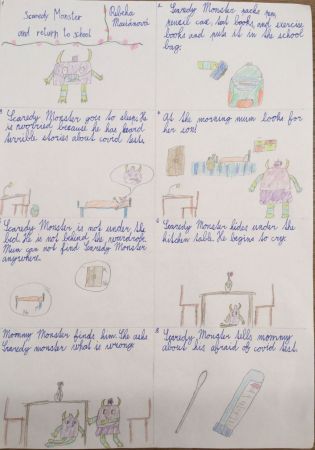 1
Scaredy Monster
and return to school
Rebeka
2. Scaredy Monster packs pen,
pencil case, text books and exercise
books and puts it in the school
bag.
3 Scaredy Monster goes to sleep. He
is worried because he has heard
terrible stories about covid tests.
4 At the morning mum looks for
her son!
5 Scaredy Monster is not under the
bed. He is not behind the wardrobe.
Mum can not find Scaredy Monster
anywhere.
6 Scaredy Monster hides under the
kitchen table. He begins to cry.
Mommy Monster finds him. She asks
Scaredy monster what is wrong.
8. Scaredy Monster tells mommy
about his afraid of covid test.